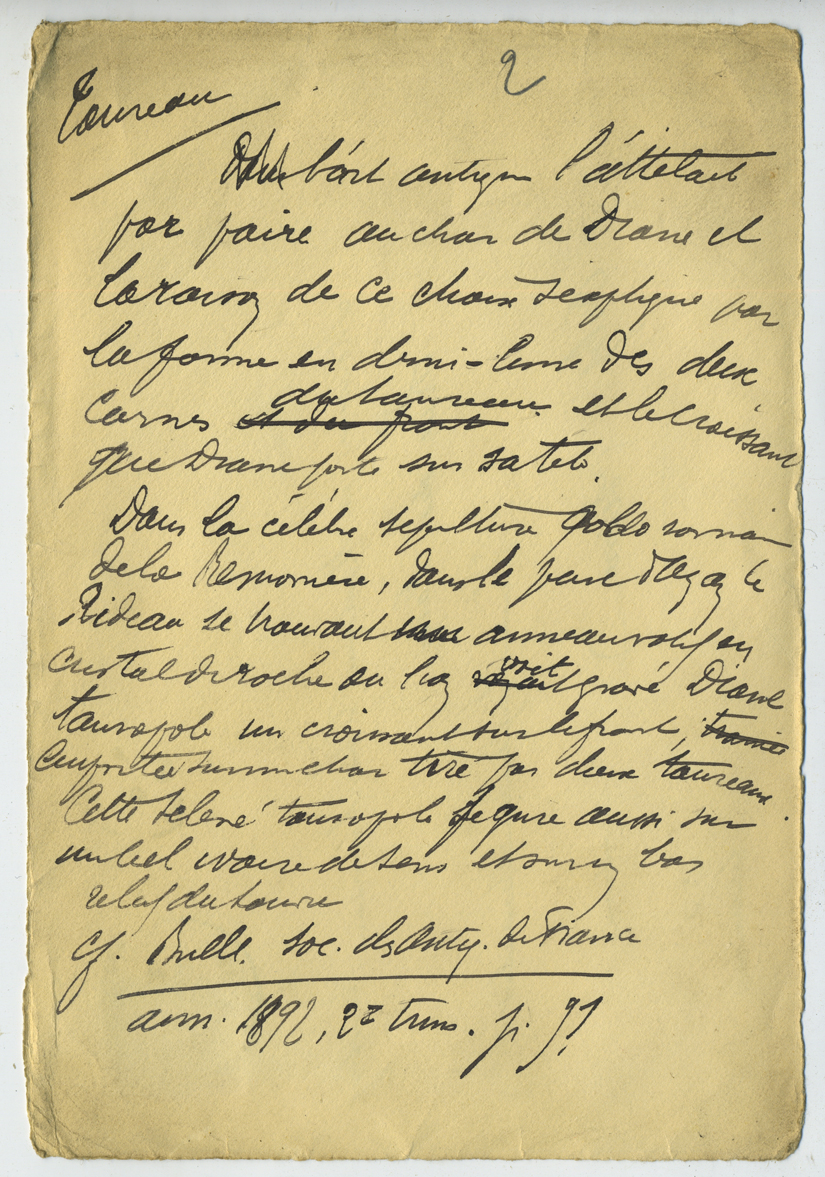 2
Taureau
Dans l'art antique l'attelait
par paire au char de Diane et
la raison de ce choix s'explique par
la forme en demi-lune des deux
du taureau
cornes et du front et le croissant
que Diane porte sur sa tête.
Dans la célèbre sépulture gallo romain
de la , dans le parc d'Azay le
Rideau se trouvant un anneau votif en
cristal de roche où l'on voit gravé Diane
tauropole un croissant sur le front,
emportée sur un char tiré par deux taureaux.
Cette séléné tauropole figure aussi sur
un bel ivoire de Sens et sur un bas
relief du Louvre
cf. Bull. Soc. des Antiq. de France
ann. 1892, 2e trim. p. 91